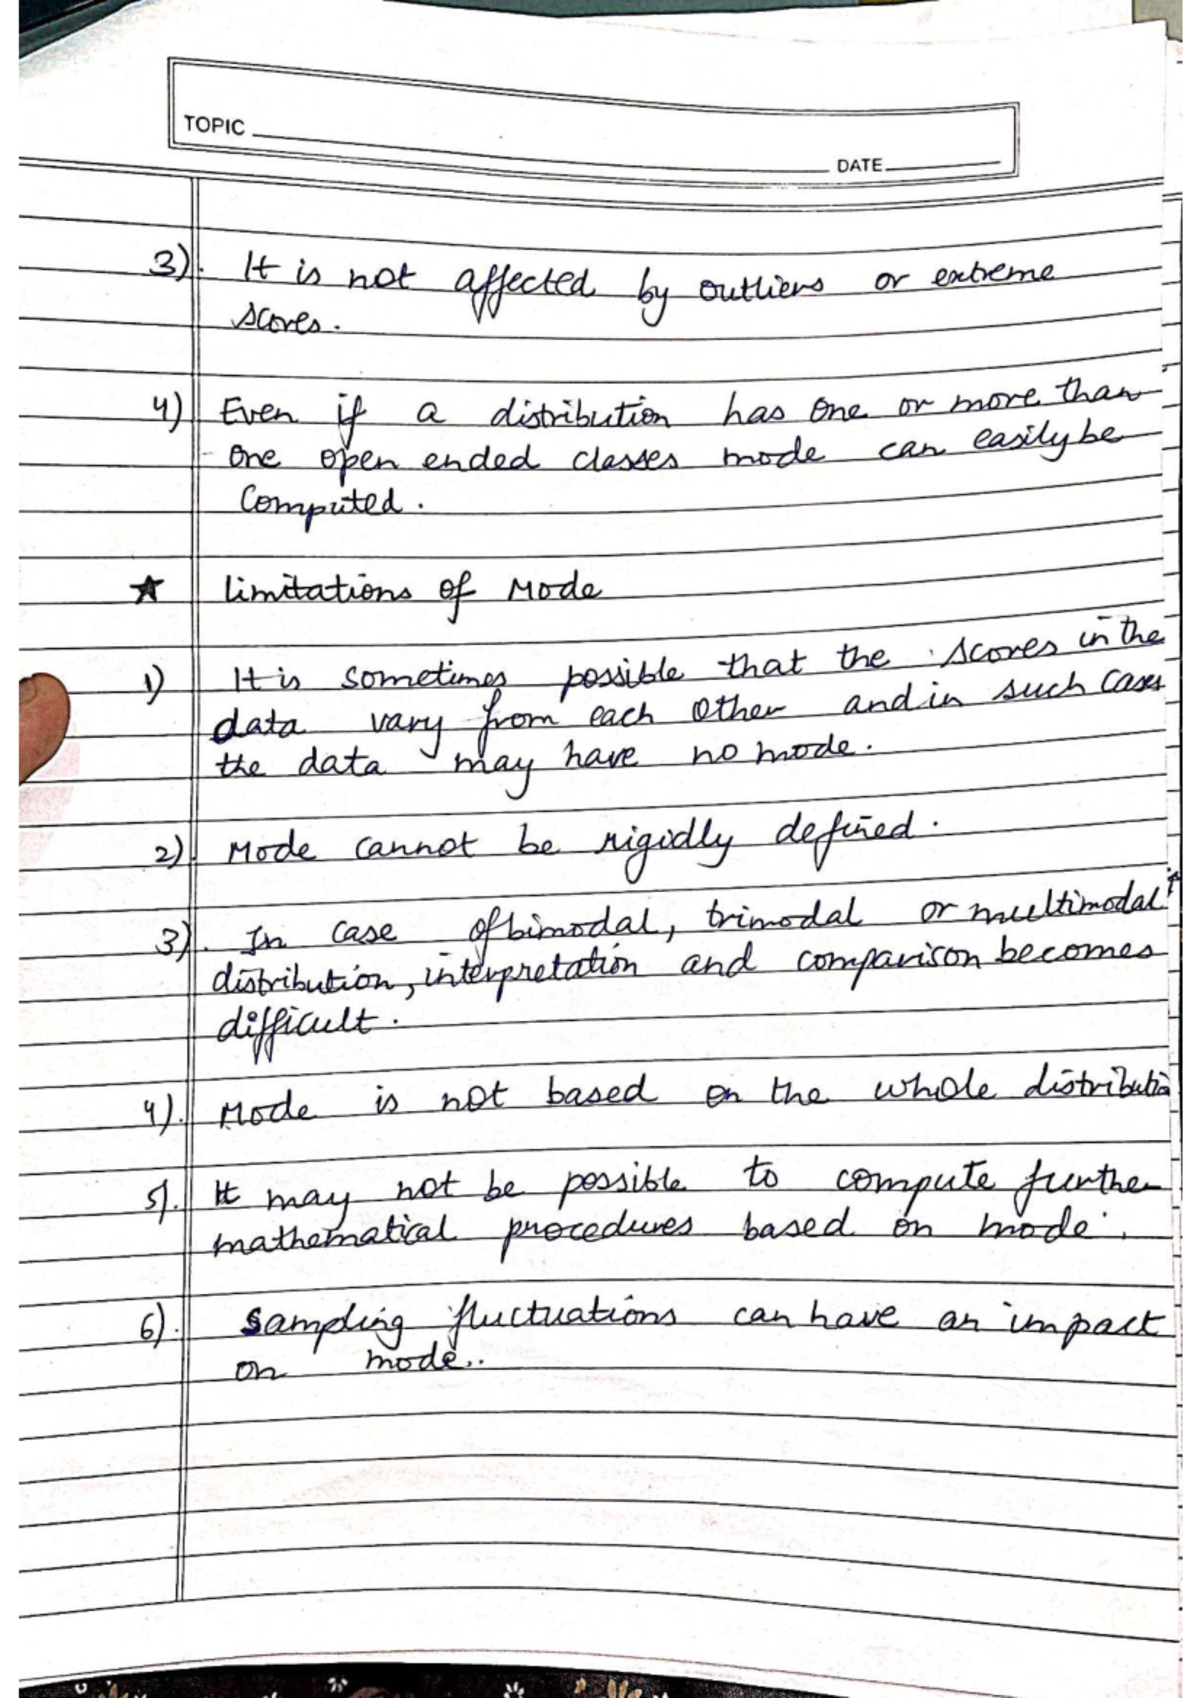 TOPIC
DATE
3). It is not affected by outliers or extreme
scores.
4) Even if a distribution has one or more than
one open ended classes mode can easily be
Computed.
★ limitations of Mode
1) It is sometimes possible that the scores in the
data vary from each other and in such cases
the data may have no mode.
2) Mode cannot be rigidly defined.
3). In case of bimodal, trimodal or multimodal
distribution, interpretation and comparison becomes
difficult.
4). Mode is not based on the whole distributio
5). It may not be possible to compute further
mathematical procedures based on mode.
6). Sampling fluctuations can have an impact
on mode..